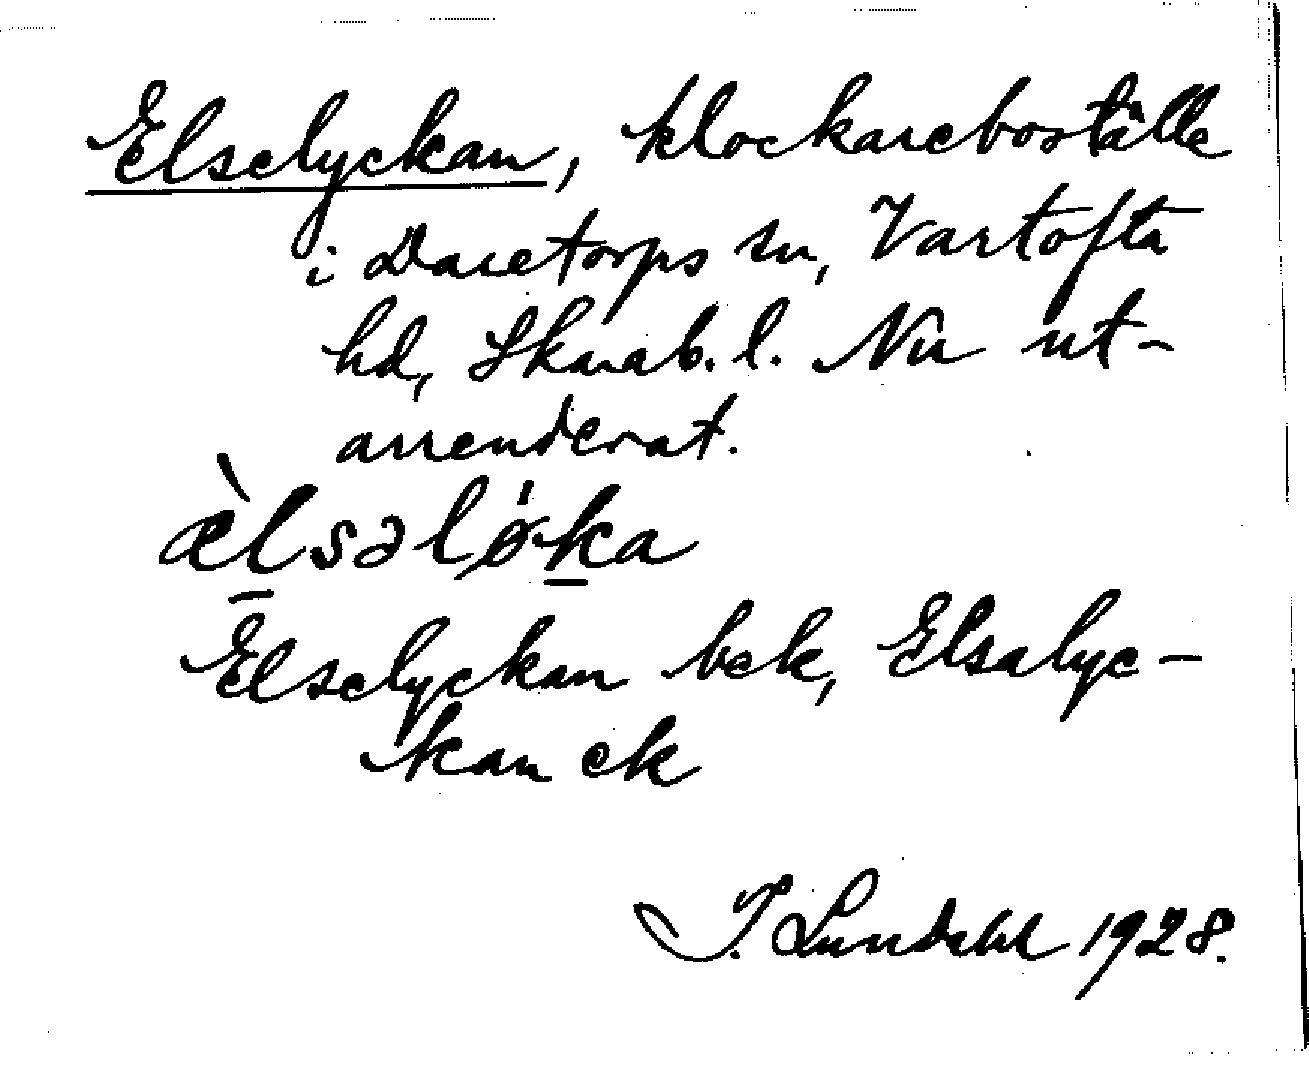 Elselyckan, klockareboställe
i Dacetorps sn, Vartofta
hd, Skarab. l. Nu ut-
arrenderat.
æ̀lsəlø̍ka
Elselyckan bek, Elsalyc-
kan ek
I. Lundahl 1928.